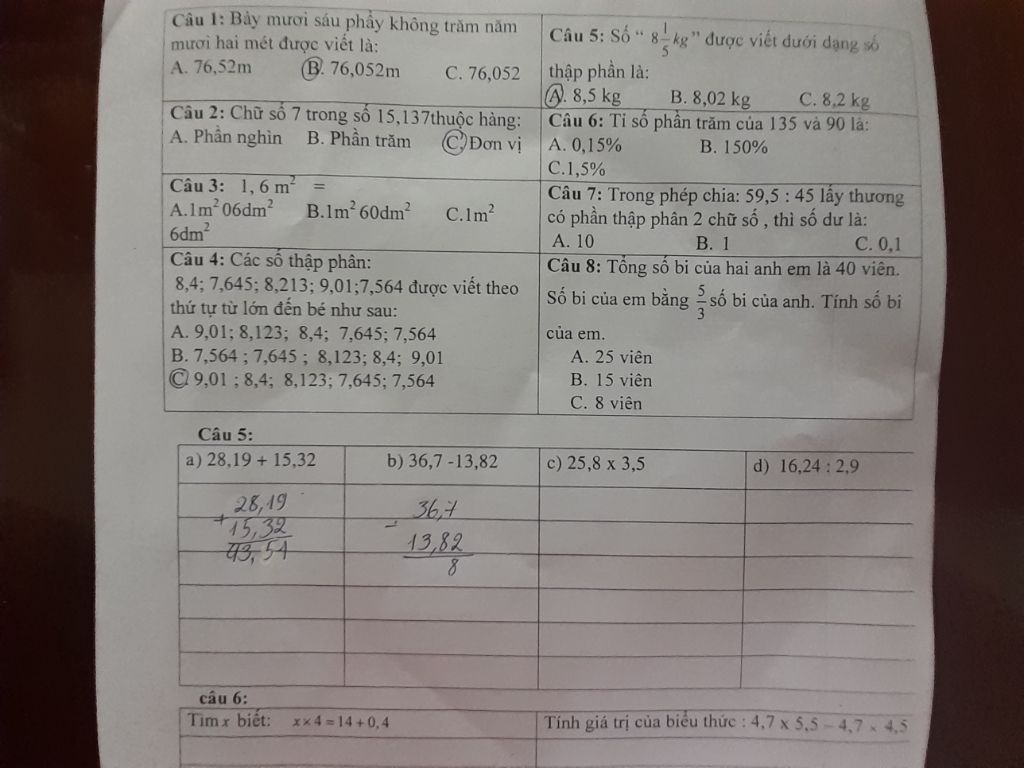 Câu 1: Bảy mươi sáu phẩy không trăm năm
mươi hai mét được viết là:
A. 76,52m B. 76,052m C. 76,052
Câu 2: Chữ số 7 trong số 15,137thuộc hàng:
A. Phần nghìn B. Phần trăm C. Đơn vị
Câu 3: 1, 6 m² =
A.1m² 06dm² B.1m² 60dm² C.1m²
6dm²
Câu 4: Các số thập phân:
8,4; 7,645; 8,213; 9,01;7,564 được viết theo
thứ tự từ lớn đến bé như sau:
A. 9,01; 8,123; 8,4; 7,645; 7,564
B. 7,564 ; 7,645 ; 8,123; 8,4; 9,01
C. 9,01 ; 8,4; 8,123; 7,645; 7,564
Câu 5: Số “ 8 1/5 kg ” được viết dưới dạng số
thập phần là:
A. 8,5 kg B. 8,02 kg C. 8,2 kg
Câu 6: Tỉ số phần trăm của 135 và 90 là:
A. 0,15% B. 150%
C.1,5%
Câu 7: Trong phép chia: 59,5 : 45 lấy thương
có phần thập phân 2 chữ số , thì số dư là:
A. 10 B. 1 C. 0,1
Câu 8: Tổng số bi của hai anh em là 40 viên.
Số bi của em bằng 5/3 số bi của anh. Tính số bi
của em.
A. 25 viên
B. 15 viên
C. 8 viên
Câu 5:
a) 28,19 + 15,32 b) 36,7 -13,82 c) 25,8 x 3,5 d) 16,24 : 2,9
28,19 36,7
+ -
15,32 13,82
43,51 8
câu 6:
Tìm x biết: x×4=14+0,4 Tính giá trị của biểu thức : 4,7 x 5,5 – 4,7 × 4,5